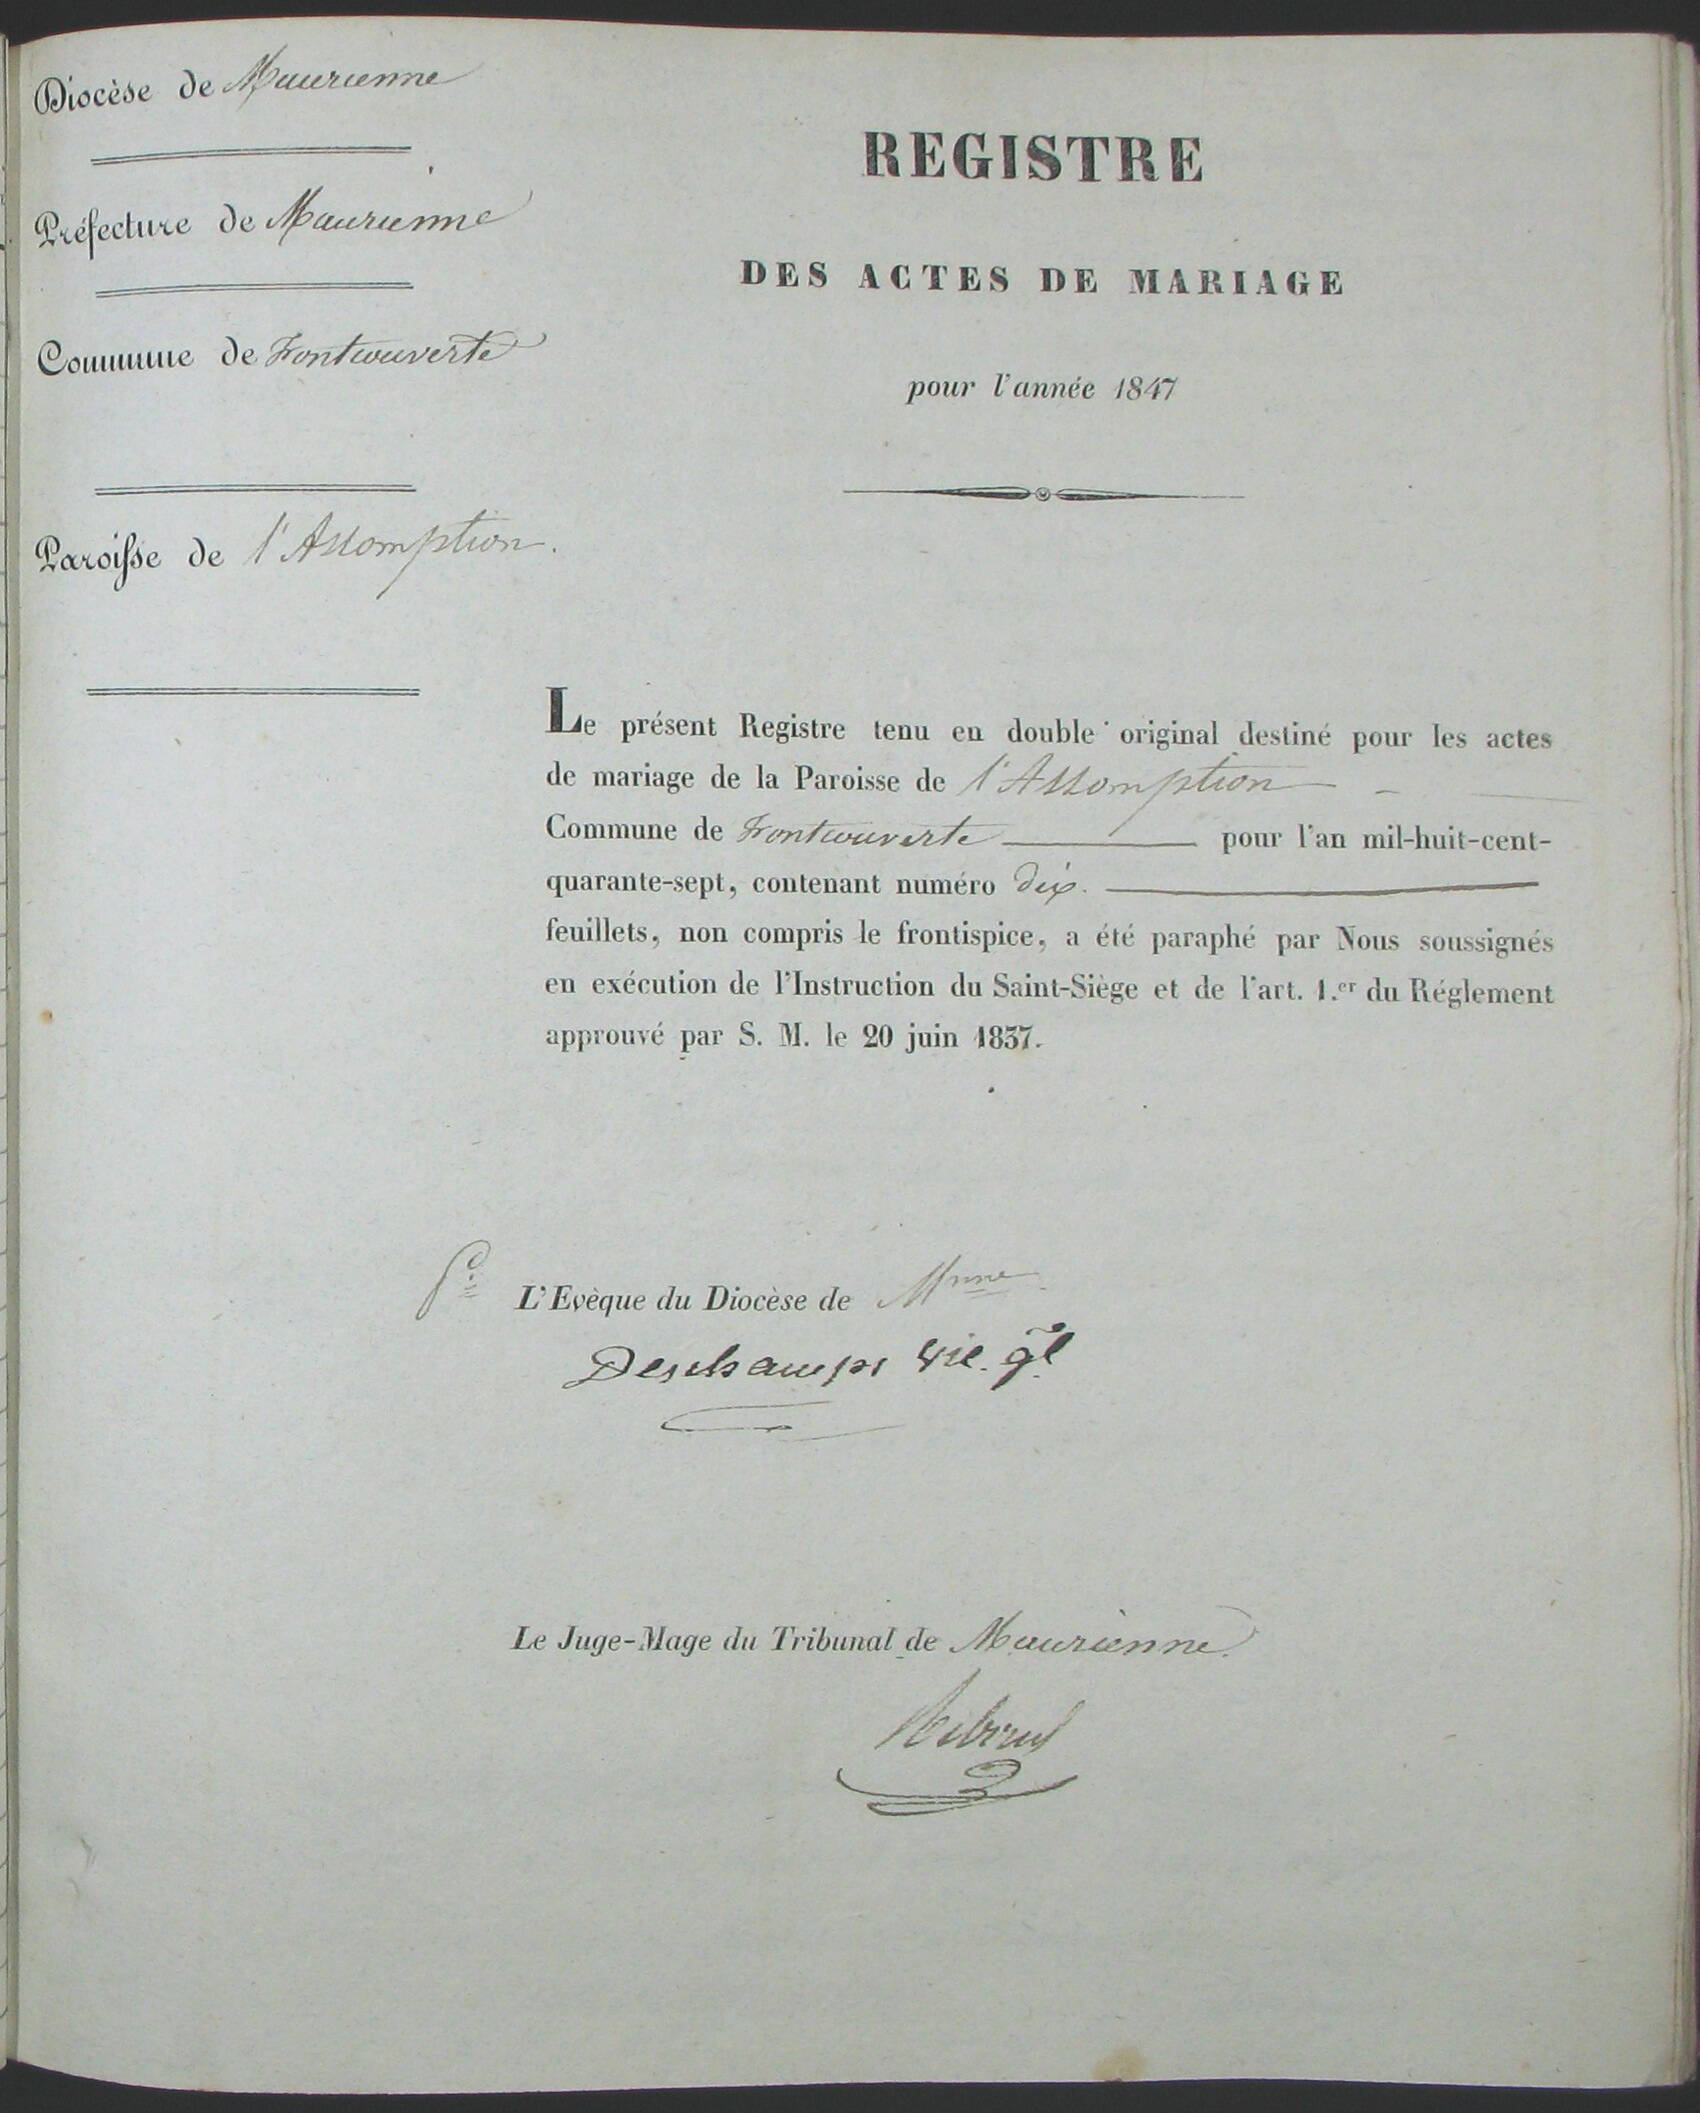 Diocèse de Maurienne
Préfecture de Maurienne
Commune de Fontcouverte
Paroisse de l'Assomption.
REGISTRE
DES ACTES DE MARIAGE
pour l'année 1847
Le présent Registre tenu en double original destiné pour les actes
de mariage de la Paroisse de l'Assomption
Commune de Fontcouverte pour l'an mil-huit-cent-
quarante-sept, contenant numéro dix.
feuillets, non compris le frontispice, a été paraphé par Nous soussignés
en exécution de l'Instruction du Saint-Siège et de l'art. 1.er du Réglement
approuvé par S. M. le 20 juin 1837.
L'Evèque du Diocèse de Mnne
Deschamps vic. gl
Le Juge-Mage du Tribunal de Maurienne.